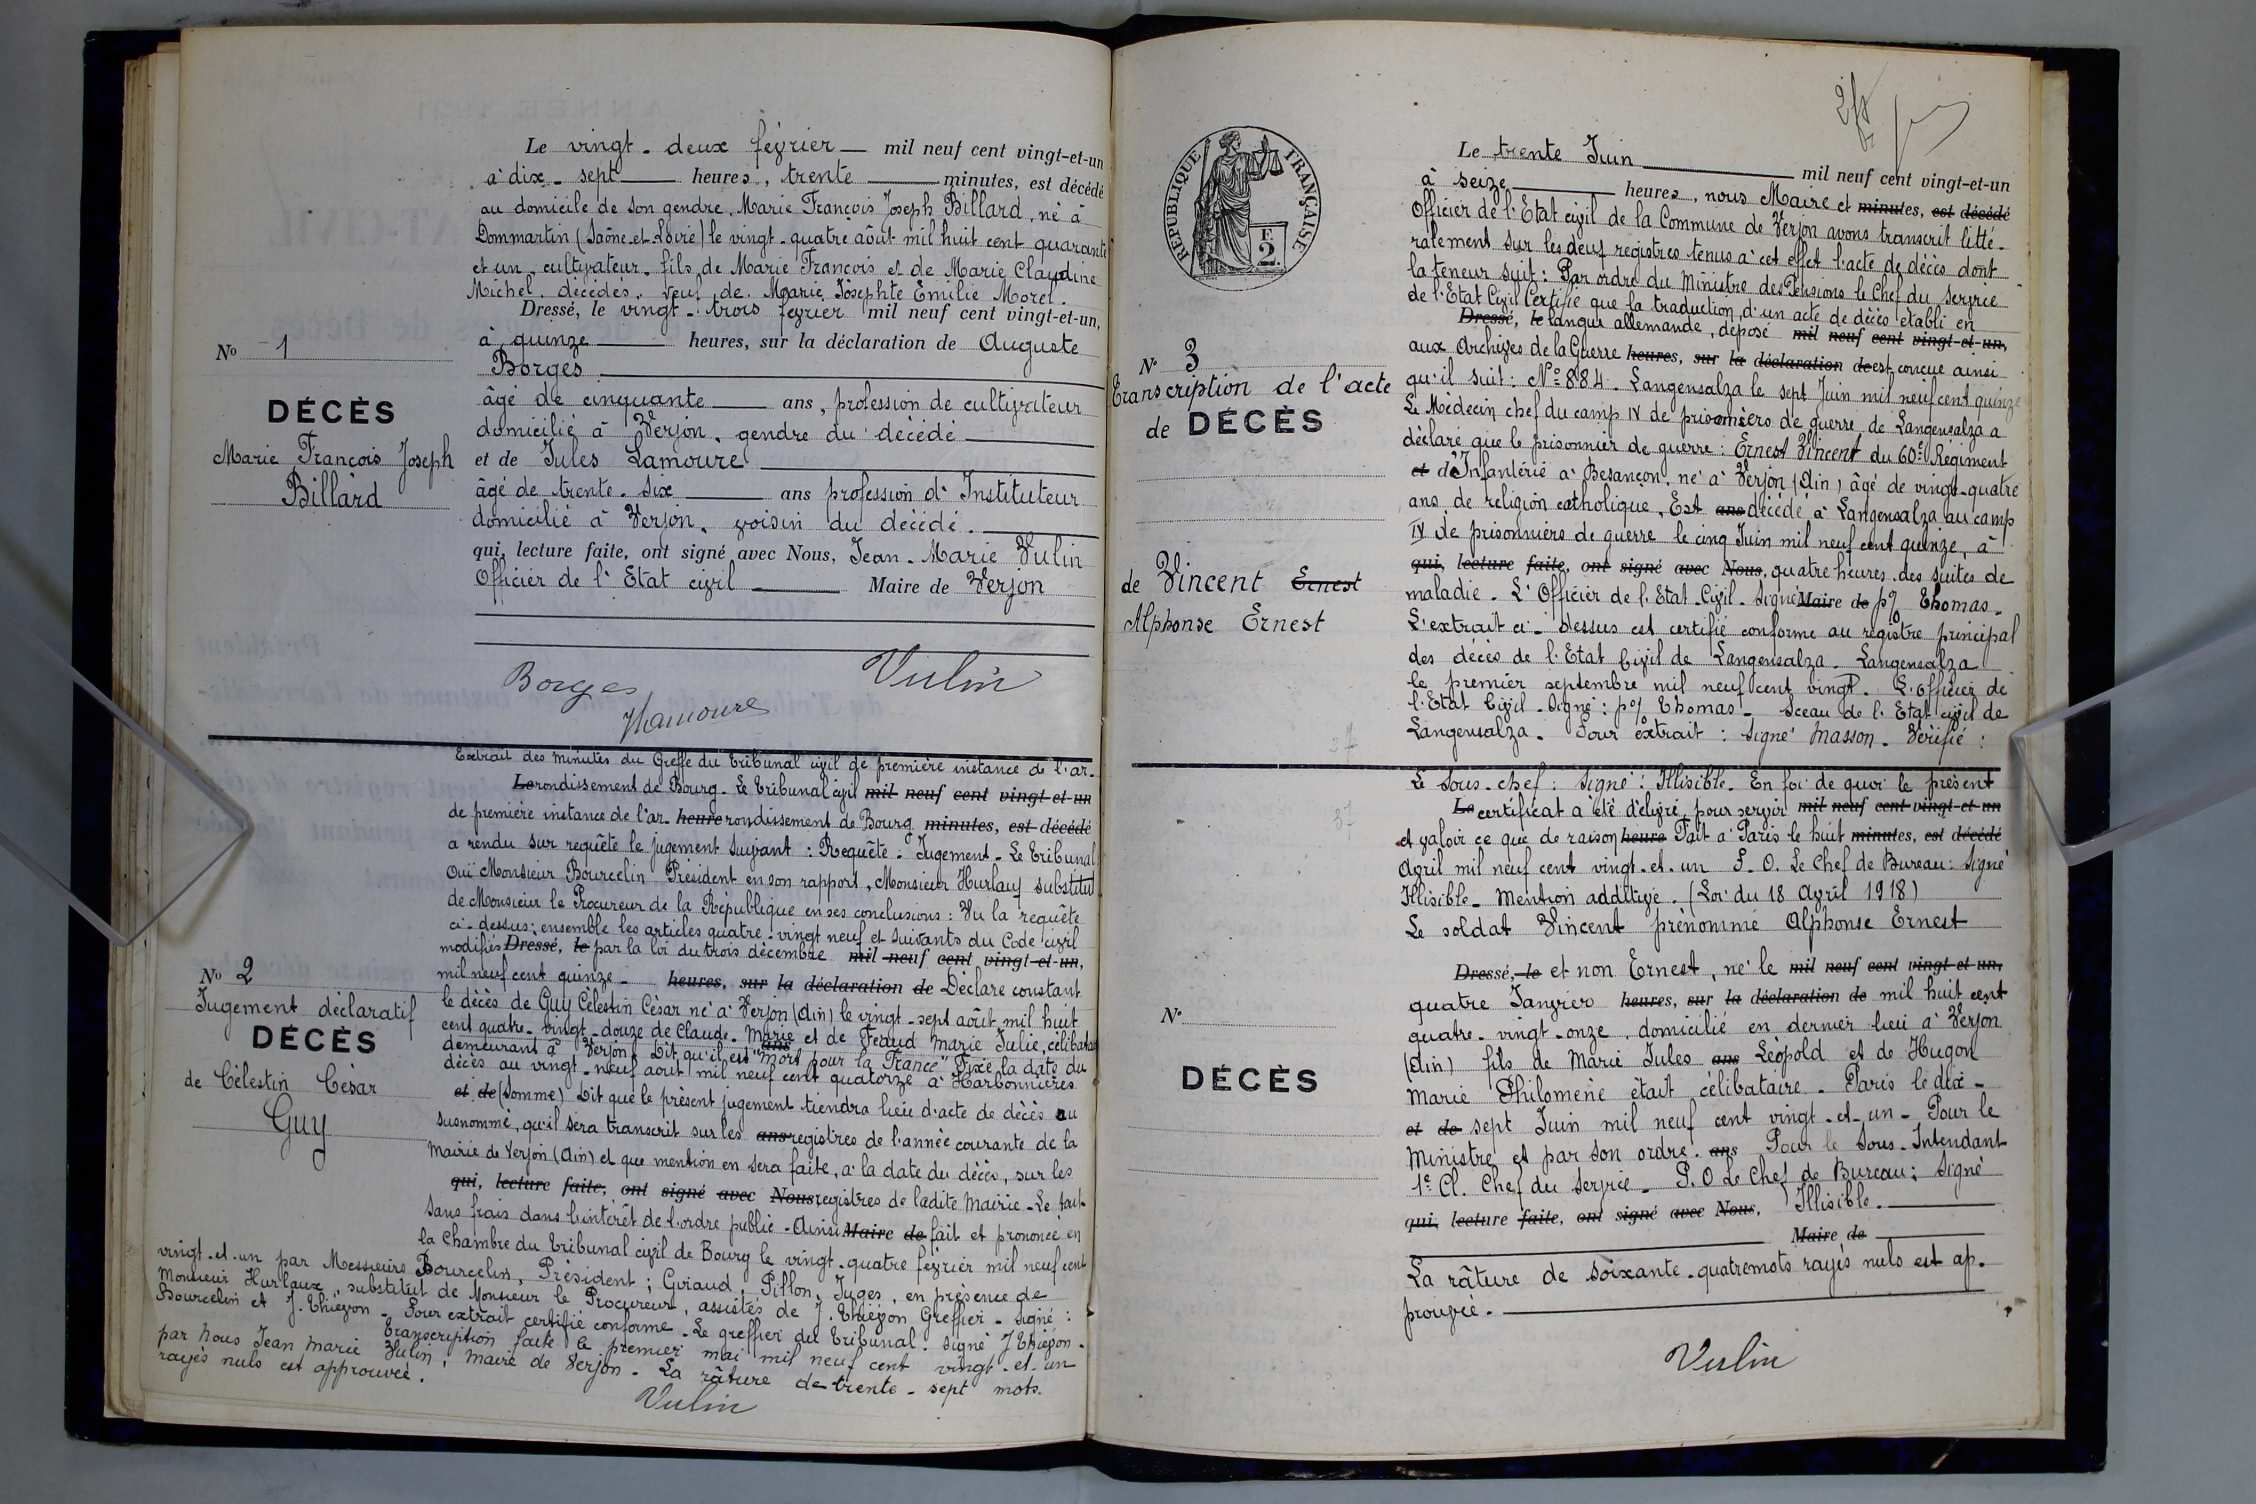 Le vingt-deux février — mil neuf cent vingt-et-un
à dix-sept — heures, trente — minutes, est décédé
au domicile de son gendre, Marie François Joseph Billard, né à
Dommartin (Saône-et-Loire) le vingt-quatre août mil huit cent quarante
et un, cultivateur, fils de Marie François et de Marie Claudine
Michel, décédés, veuf de Marie Josephte Emilie Morel.
Dressé, le vingt-trois février mil neuf cent vingt-et-un,
à quinze — heures, sur la déclaration de Auguste
Borges
âgé de cinquante — ans, profession de cultivateur
domicilié à Verjon, gendre du décédé
et de Jules Lamoure
âgé de trente-six — ans profession d'Instituteur
domicilié à Verjon, voisin du décédé.
qui, lecture faite, ont signé avec Nous, Jean-Marie Vulin
Officier de l'Etat civil — Maire de Verjon
No 1
DÉCÈS
Marie François Joseph
Billard
Borges
Vulin
Lamoure
Extrait des minutes du Greffe du Tribunal civil de première instance de l'ar-
Le rondissement de Bourg. Le Tribunal civil mil neuf cent vingt-et-un
de première instance de l'ar- heure rondissement de Bourg minutes, est décédé
a rendu sur requête le jugement suivant : Requête - Jugement - Le Tribunal
Ouï Monsieur Bourcelin Président en son rapport, Monsieur Hurlaux substitut
de Monsieur le Procureur de la République en ses conclusions : Vu la requête
ci-dessus ; ensemble les articles quatre-vingt neuf et suivants du Code civil
modifiés Dressé, le par la loi du trois décembre mil neuf cent vingt-et-un,
mil neuf cent quinze - heures, sur la déclaration de Déclare constant
le décès de Guy Célestin César né à Verjon (Ain) le vingt-sept août mil huit
cent quatre-vingt-douze de Claude-Marie et de Féaud Marie Julie, célibataire
demeurant à Verjon ans Dit qu'il est "Mort pour la France" Fixe la date du
décès au vingt-neuf août mil neuf cent quatorze à Harbonnières
et de (Somme) Dit que le présent jugement tiendra lieu d'acte de décès au
susnommé, qu'il sera transcrit sur les ans registres de l'année courante de la
Mairie de Verjon (Ain) et que mention en sera faite, à la date du décès, sur les
qui, lecture faite, ont signé avec Nous registres de ladite Mairie - Le tout
sans frais dans l'intérêt de l'ordre public - Ainsi Maire de fait et prononcé en
la Chambre du Tribunal civil de Bourg le vingt-quatre février mil neuf cent
vingt-et-un par Messieurs Bourcelin, Président ; Guiraud, Pillon, Juges, en présence de
Monsieur Hurlaux, substitut de Monsieur le Procureur, assistés de J. Thiévon Greffier - Signé :
Bourcelin et J. Thiévon - Pour extrait certifié conforme - Le greffier du Tribunal. Signé J Thiévon.
Transcription faite le premier mai mil neuf cent vingt-et-un
par Nous Jean Marie Vulin, Maire de Verjon - La râture de trente-sept mots
rayés nuls est approuvée.
Vulin
No 2
Jugement déclaratif
DÉCÈS
de Célestin César
Guy
RÉPUBLIQUE FRANÇAISE
F.
2.
Le trente Juin — mil neuf cent vingt-et-un
à seize — heures, nous Maire et minutes, est décédé
Officier de l'Etat civil de la Commune de Verjon avons transcrit litté-
ralement sur les deux registres tenus à cet effet l'acte de décès dont
la teneur suit : Par ordre du Ministre des Pensions le Chef du service
de l'Etat Civil Certifie que la traduction d'un acte de décès établi en
Dressé, le langue allemande, déposé mil neuf cent vingt-et-un,
aux Archives de la Guerre heures, sur la déclaration de est conçue ainsi
qu'il suit : No 884. Langensalza le sept Juin mil neuf cent quinze
Le Médecin chef du camp IV de prisonniers de guerre de Langensalza a
déclaré que le prisonnier de guerre : Ernest Vincent du 60e Régiment
et d'Infanterie à Besançon, né à Verjon (Ain) âgé de vingt-quatre
ans, de religion catholique, Est ans décédé à Langensalza au camp
IV de prisonniers de guerre le cinq Juin mil neuf cent quinze, à
qui, lecture faite, ont signé avec Nous, quatre heures des suites de
maladie - L'Officier de l'Etat-Civil. Signé Maire de po/ Thomas.
L'extrait ci-dessus est certifié conforme au registre principal
des décès de l'Etat Civil de Langensalza. Langensalza
le premier septembre mil neuf cent vingt. L'officier de
l'Etat Civil - Signé : po/ Thomas - Sceau de l'Etat civil de
Langensalza. Pour extrait : Signé Masson. Vérifié :
Le Sous-chef : Signé : Illisible. En foi de quoi le présent
Le certificat a été délivré pour servir mil neuf cent vingt-et-un
et valoir ce que de raison heure Fait à Paris le huit minutes, est décédé
Avril mil neuf cent vingt-et-un P. O. Le Chef de Bureau : Signé
Illisible - Mention additive. (Loi du 18 Avril 1918)
Le soldat Vincent prénommé Alphonse Ernest
Dressé, le et non Ernest, né le mil neuf cent vingt-et-un,
quatre Janvier heures, sur la déclaration de mil huit cent
quatre-vingt-onze, domicilié en dernier lieu à Verjon
(Ain) fils de Marie Jules ans Léopold et de Hugon
Marie Philomène était célibataire - Paris le dix-
et de sept Juin mil neuf cent vingt-et-un - Pour le
Ministre et par son ordre. ans Pour le Sous-Intendant
1e Cl. Chef du Service - P. O Le Chef de Bureau ; Signé
qui, lecture faite, ont signé avec Nous, Illisible.
Maire de
La râture de soixante-quatre mots rayés nuls est ap-
prouvée.
Vulin
No 3
Transcription de l'acte
de DÉCÈS
de Vincent Ernest
Alphonse Ernest
37
37
No
DÉCÈS